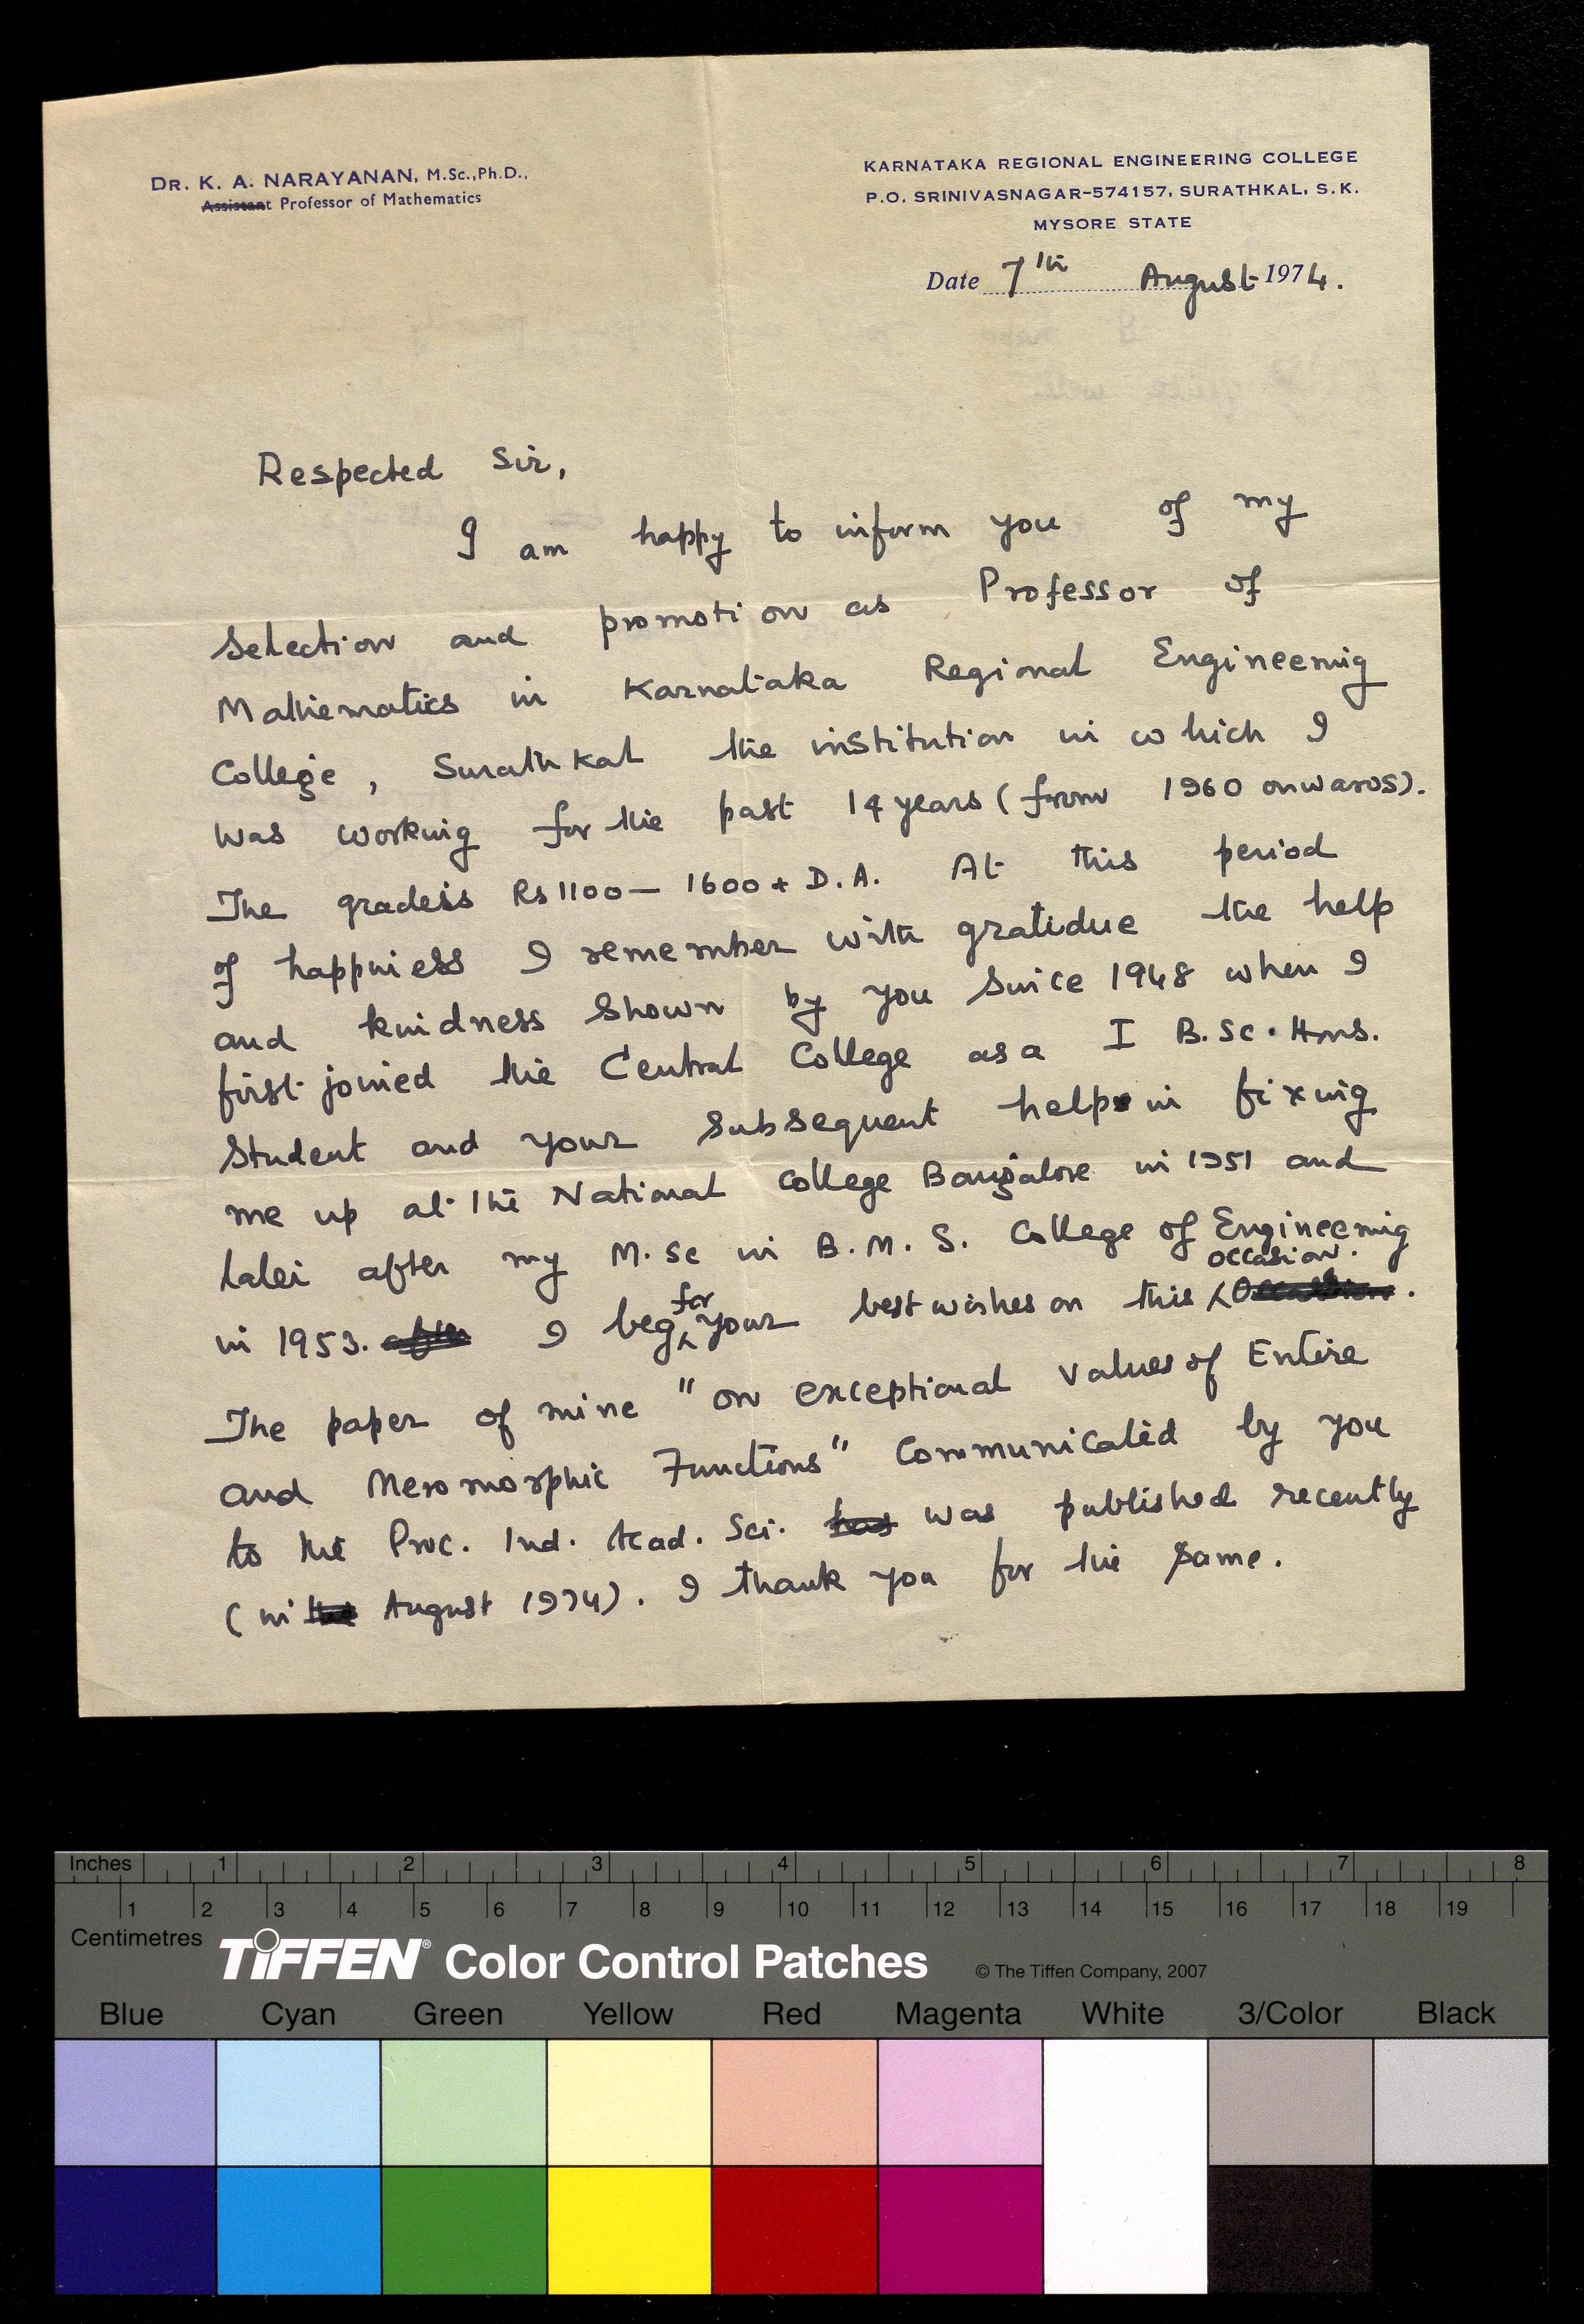 DR. K. A. NARAYANAN, M.Sc.,Ph.D.,
Assistant Professor of Mathematics
KARNATAKA REGIONAL ENGINEERING COLLEGE
P.O. SRINIVASNAGAR-574157, SURATHKAL, S.K.
MYSORE STATE
Date 7th August 1974.
Respected Sir,
I am happy to inform you of my
Selection and promotion as Professor of
Mathematics in Karnataka Regional Engineering
College, Surathkal the institution in which I
was working for the past 14 years (from 1960 onwards).
The grade is Rs 1100 — 1600 + D.A. At this period
of happiness I remember with gratidue the help
and kindness shown by you since 1948 when I
first joined the Central College as a I B.Sc. Hns.
Student and your subsequent help in fixing
me up at the National College Bangalore in 1951 and
later after my M.Sc in B.M.S. College of Engineering
in 1953. after I beg for your best wishes on this occasion.
The paper of mine "on exceptional values of Entire
and Meromorphic Functions" communicated by you
to the Proc. Ind. Acad. Sci. has was published recently
(in the August 1974). I thank you for the same.
Inches 1 2 3 4 5 6 7 8
1 2 3 4 5 6 7 8 9 10 11 12 13 14 15 16 17 18 19
Centimetres
TIFFEN® Color Control Patches © The Tiffen Company, 2007
Blue Cyan Green Yellow Red Magenta White 3/Color Black